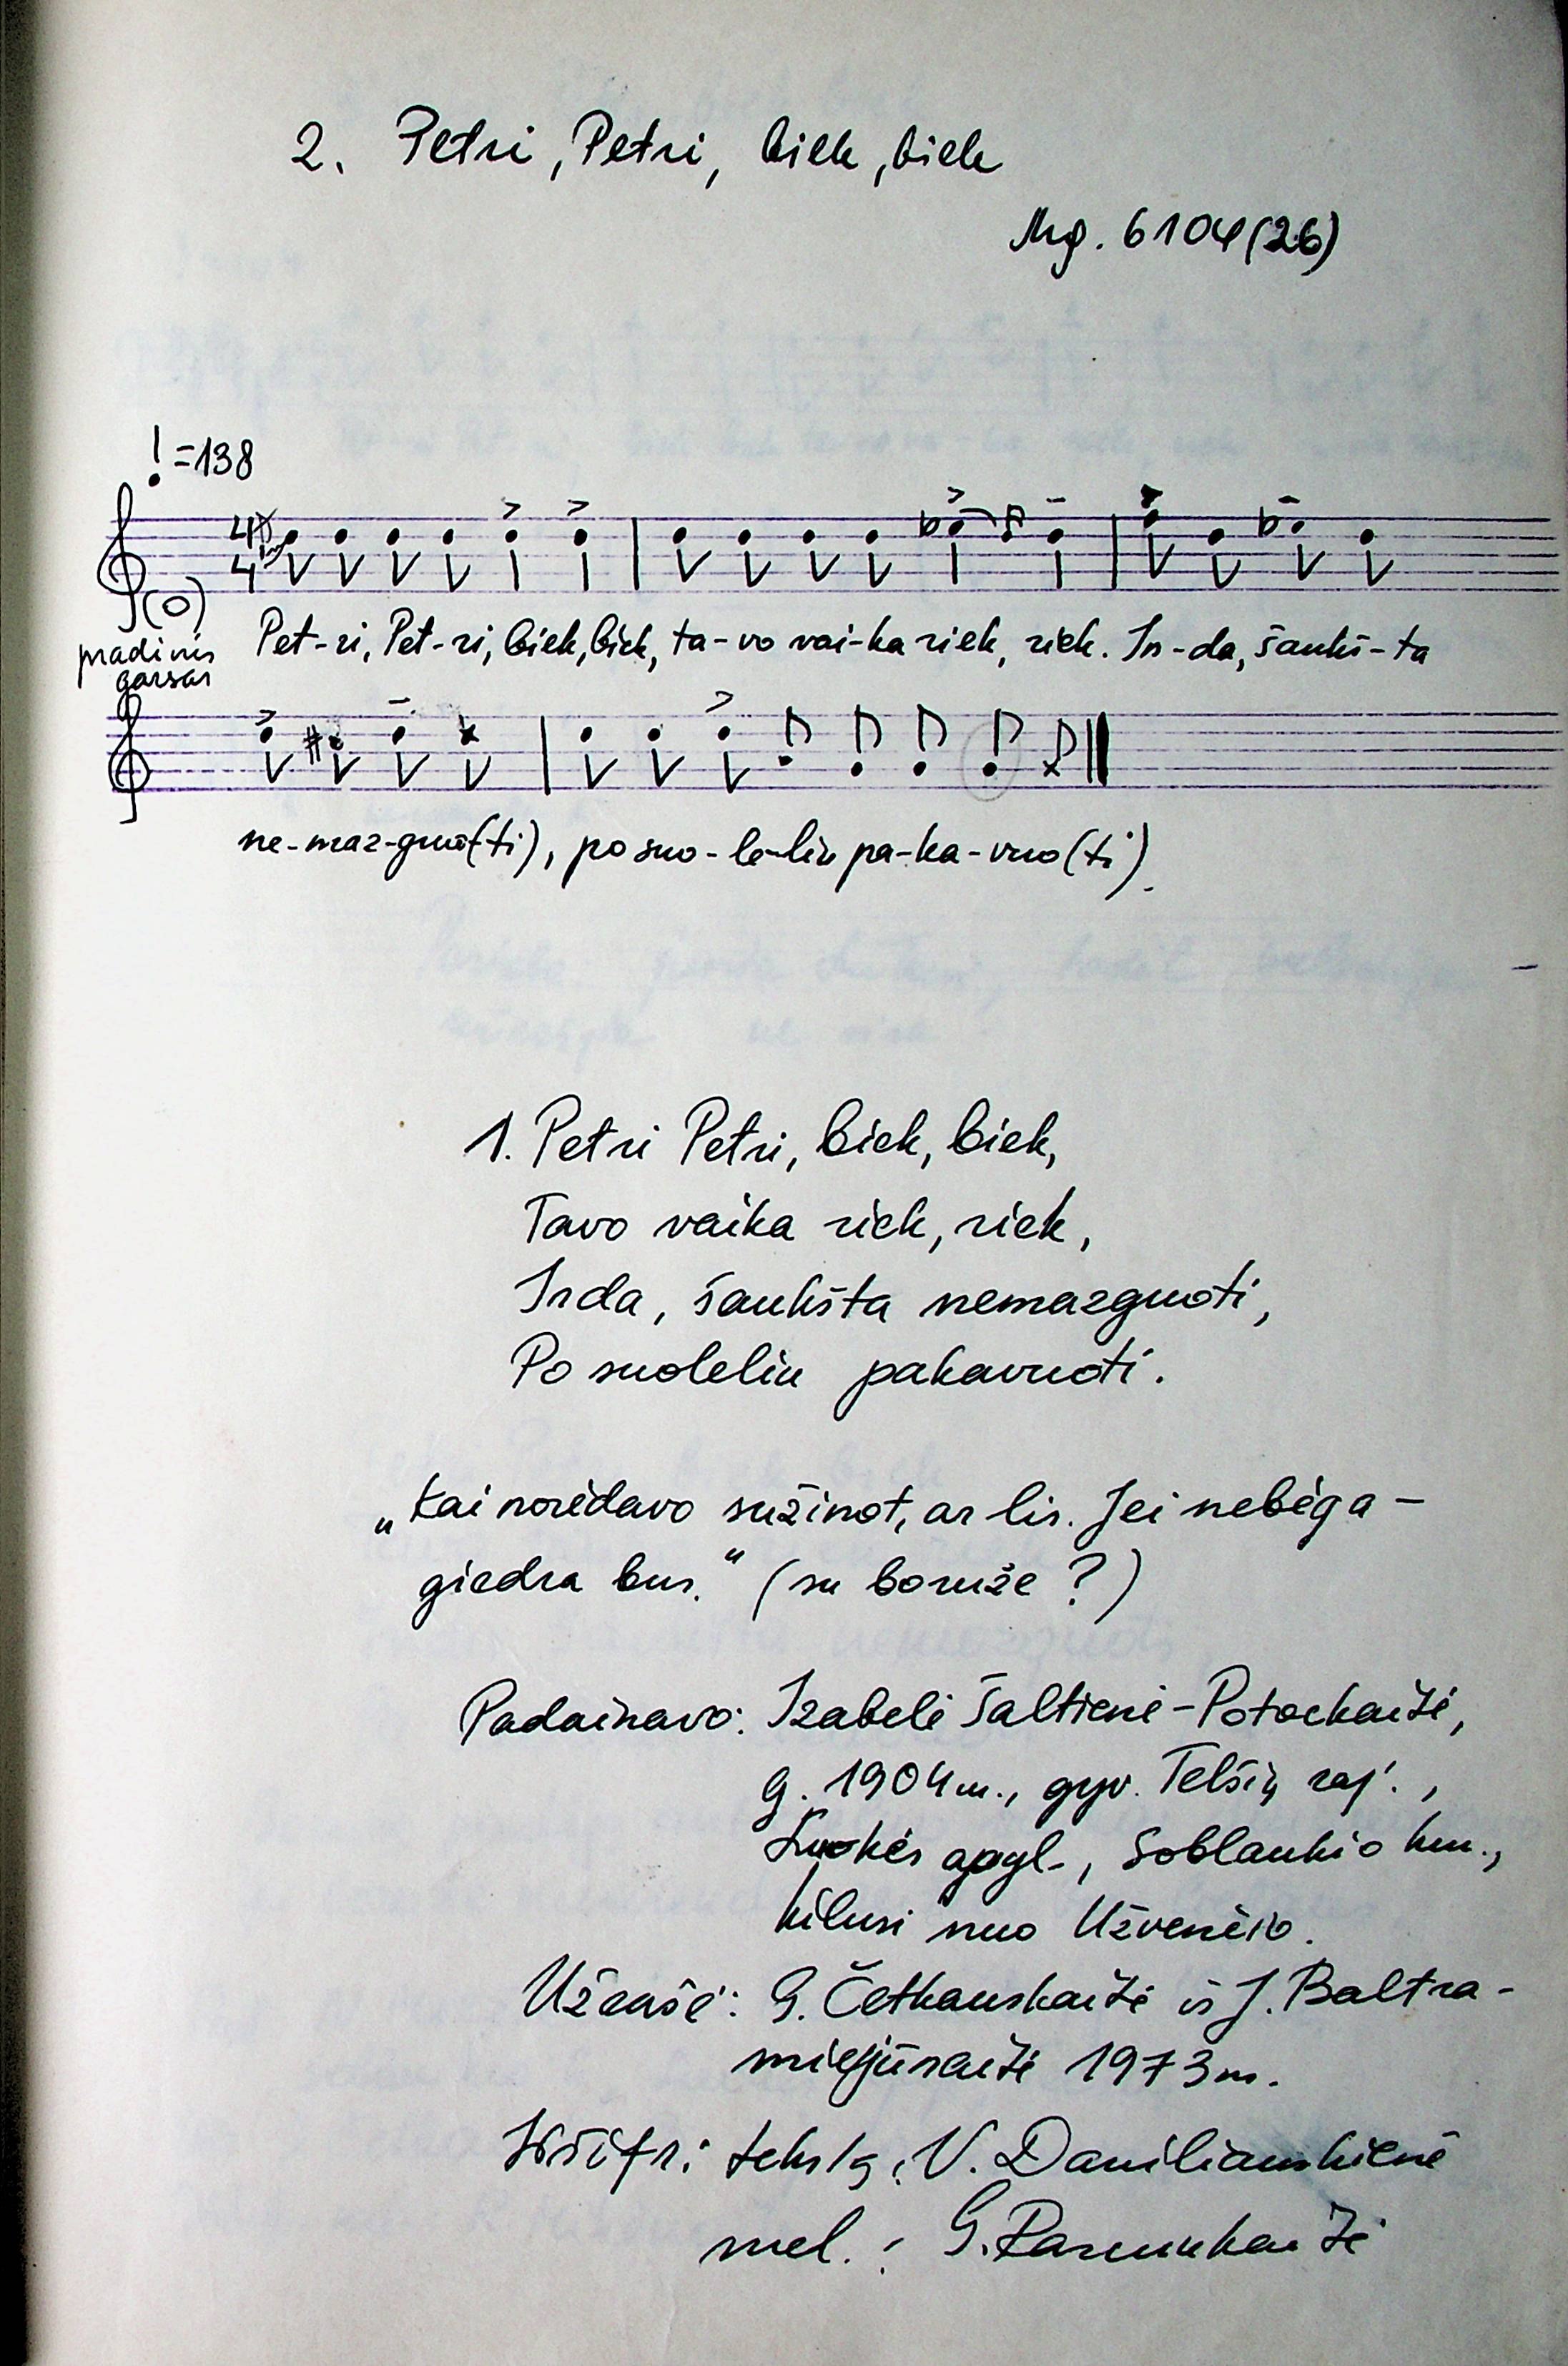 2. Petri, Petri, biek, biek
Mg. 6104(26)
=138
4
4
(o)
pradinis
garsas
Pet-ri, Pet-ri, biek, biek, ta-vo vai-ka riek, riek. In-da, šaukš-ta
ne-maz-guo(ti), po suo-le-liu pa-ka-vuo(ti).
1. Petri Petri, biek, biek,
Tavo vaika riek, riek,
Inda, šaukšta nemazguoti,
Po suoleliu pakavuoti.
„Kai norėdavo sužinot, ar lis. Jei nebėga –
giedra bus.“ (su boruže?)
Padainavo: Izabelė Šaltienė-Potockaitė,
g. 1904 m., gyv. Telšių raj.,
Luokės apyl., Soblaukio km.,
kilusi nuo Užvenčio.
Užrašė: G. Četkauskaitė ir J. Baltra-
miejūnaitė 1973 m.
Iššifr: tekstą: V. Daniliauskienė
mel.: G. Razmukaitė